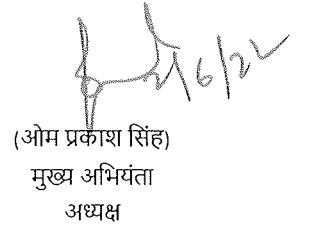 2/6/22
(ओम प्रकाश सिंह)
मुख्य अभियंता
अध्यक्ष